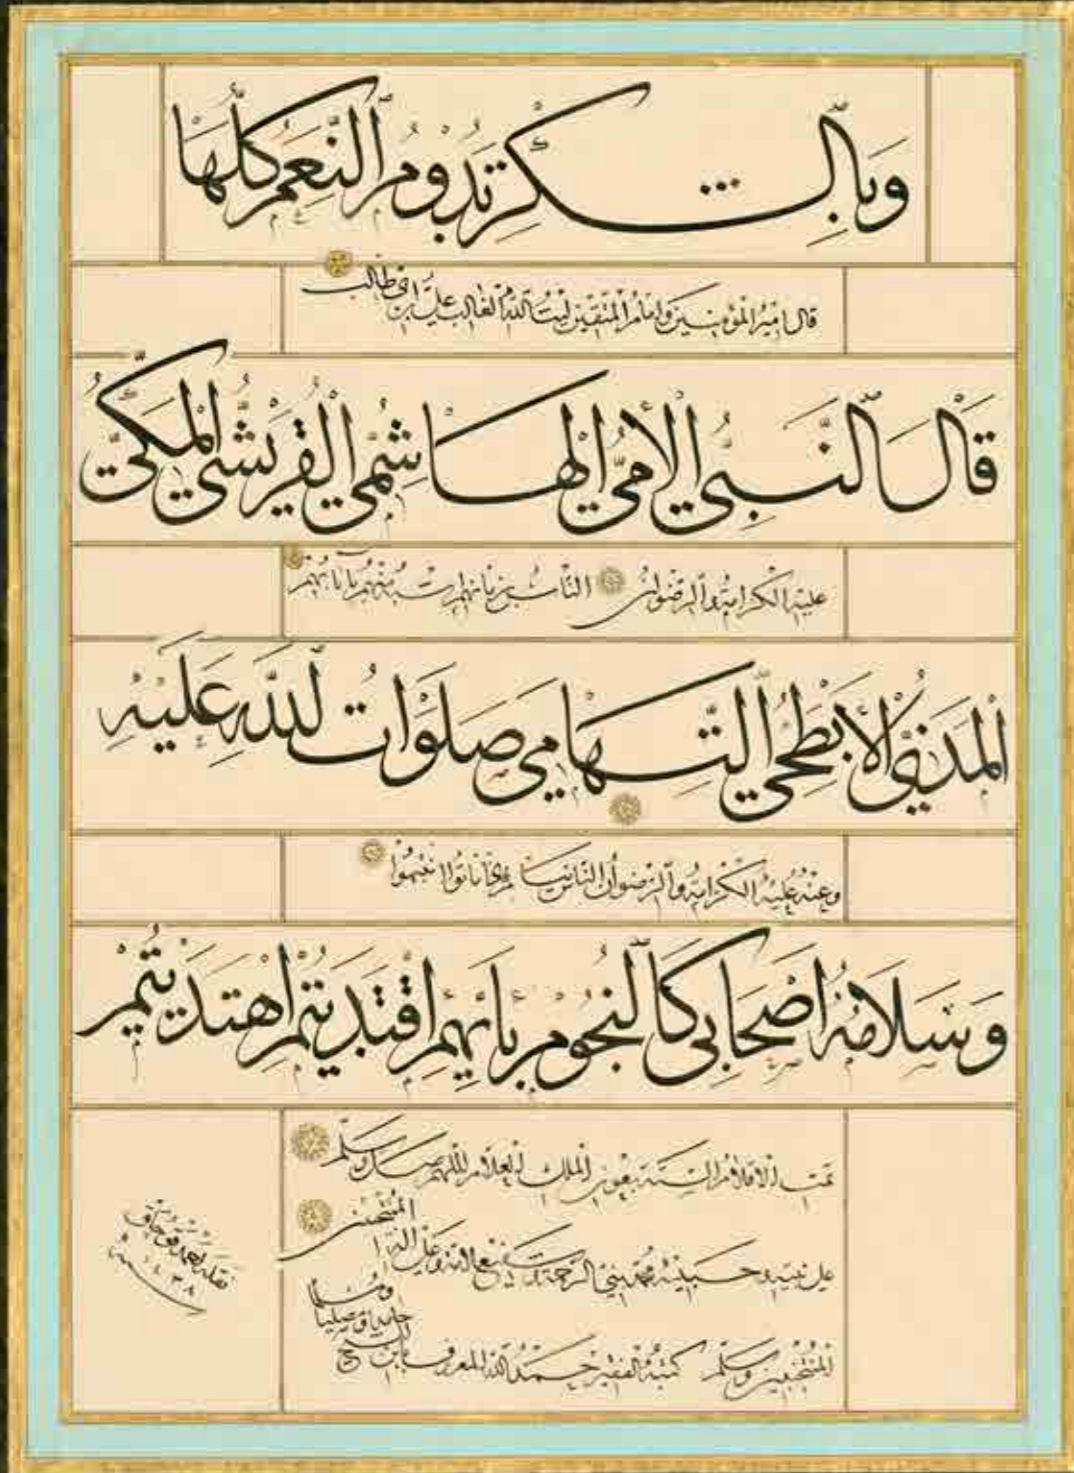 وَبِالشُّكْرِ تَدُوْمُ ٱلنِّعَمُ كُلُّهَا
قال امير المؤمنين وامام المتقين ليث الله الغالب علي ابن ابي طالب
قَالَ ٱلنَّبِيُّ الْأُمِّيُّ الْهَاشِمِيُّ الْقُرَيْشِيُّ الْمَكِّيُّ
عليه الكرامة والرضوان الناس بزمانهم اشبه منهم بآبائهم
الْمَدَنِيُّ الْأَبْطَحِيُّ التِّهَامِي صَلَوَاتُ ٱللّٰهِ عَلَيْهِ
وعنه عليه الكرامة والرضوان الناس نيام فاذا ماتوا انتبهوا
وَسَلَامُهُ اَصْحَابِي كَالنُّجُوْمِ بِأَيِّهِمِ اقْتَدَيْتُمْ اِهْتَدَيْتُمْ
تمت الاقلام الستة بعون الملك العلام اللهم صل وسلم
على نبيه وحبيبه محمد نبي الرحمة وشفيع الامة وعلى آله
المنتجبين وسلم كتبه الفقير حمد الله المعروف بابن الشيخ
حامدا ومصليا ومسلما
نقله احمد قوجاق
سنة ١٤٣٨